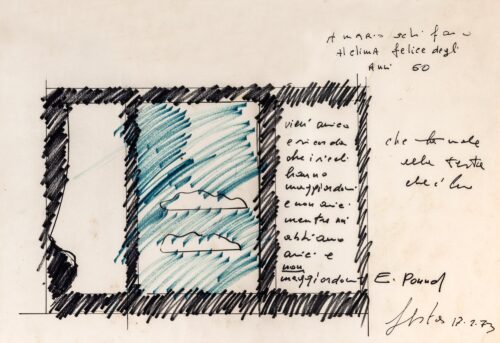 A mario schifano
Al clima felice degli
Anni 60
vieni amico
e ricorda
che i ricchi
hanno
maggiordomi
e non amici
mentre noi
abbiamo
amici e
non
maggiordomi
E. Pound
che
testa
Festa